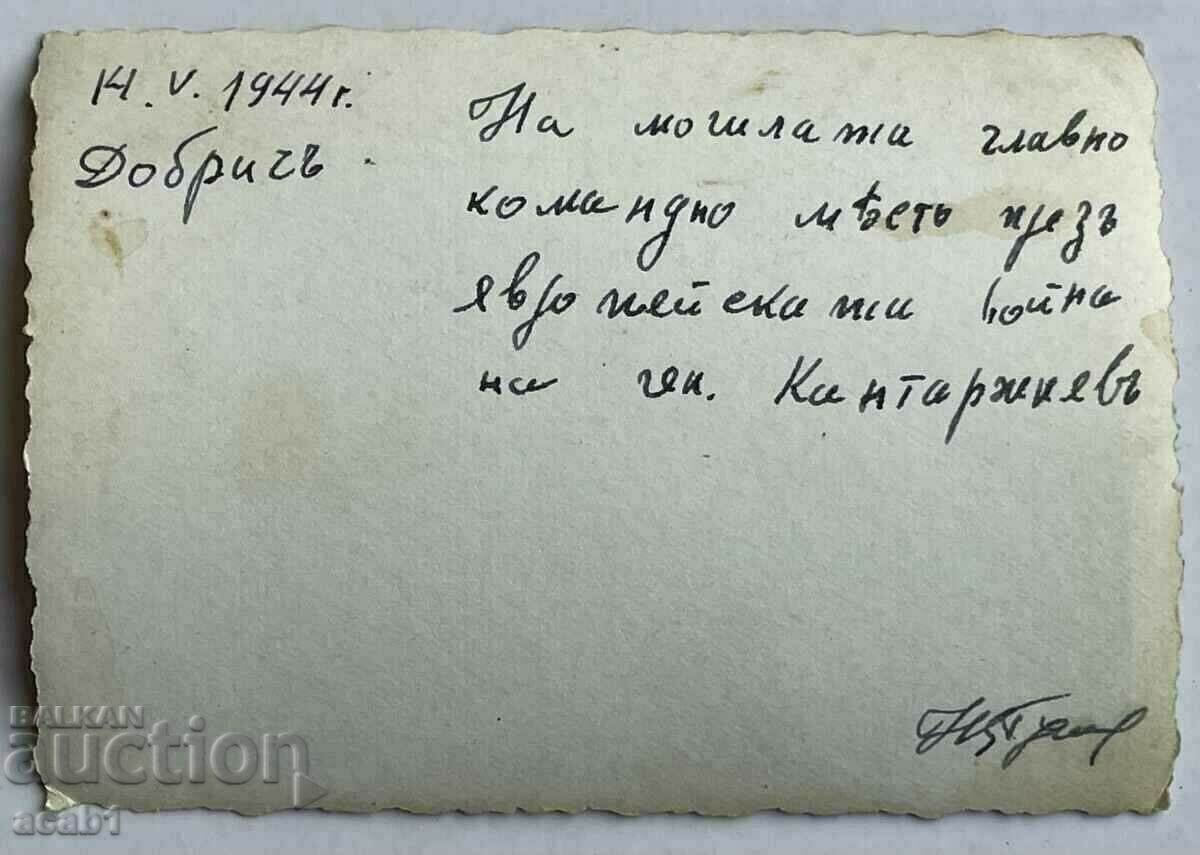 14.V.1944г.
Добричъ.
На могилата главно
командно мѣсто презъ
европейската война
на ген. Кантарджиевъ
BALKAN
auction
acab1